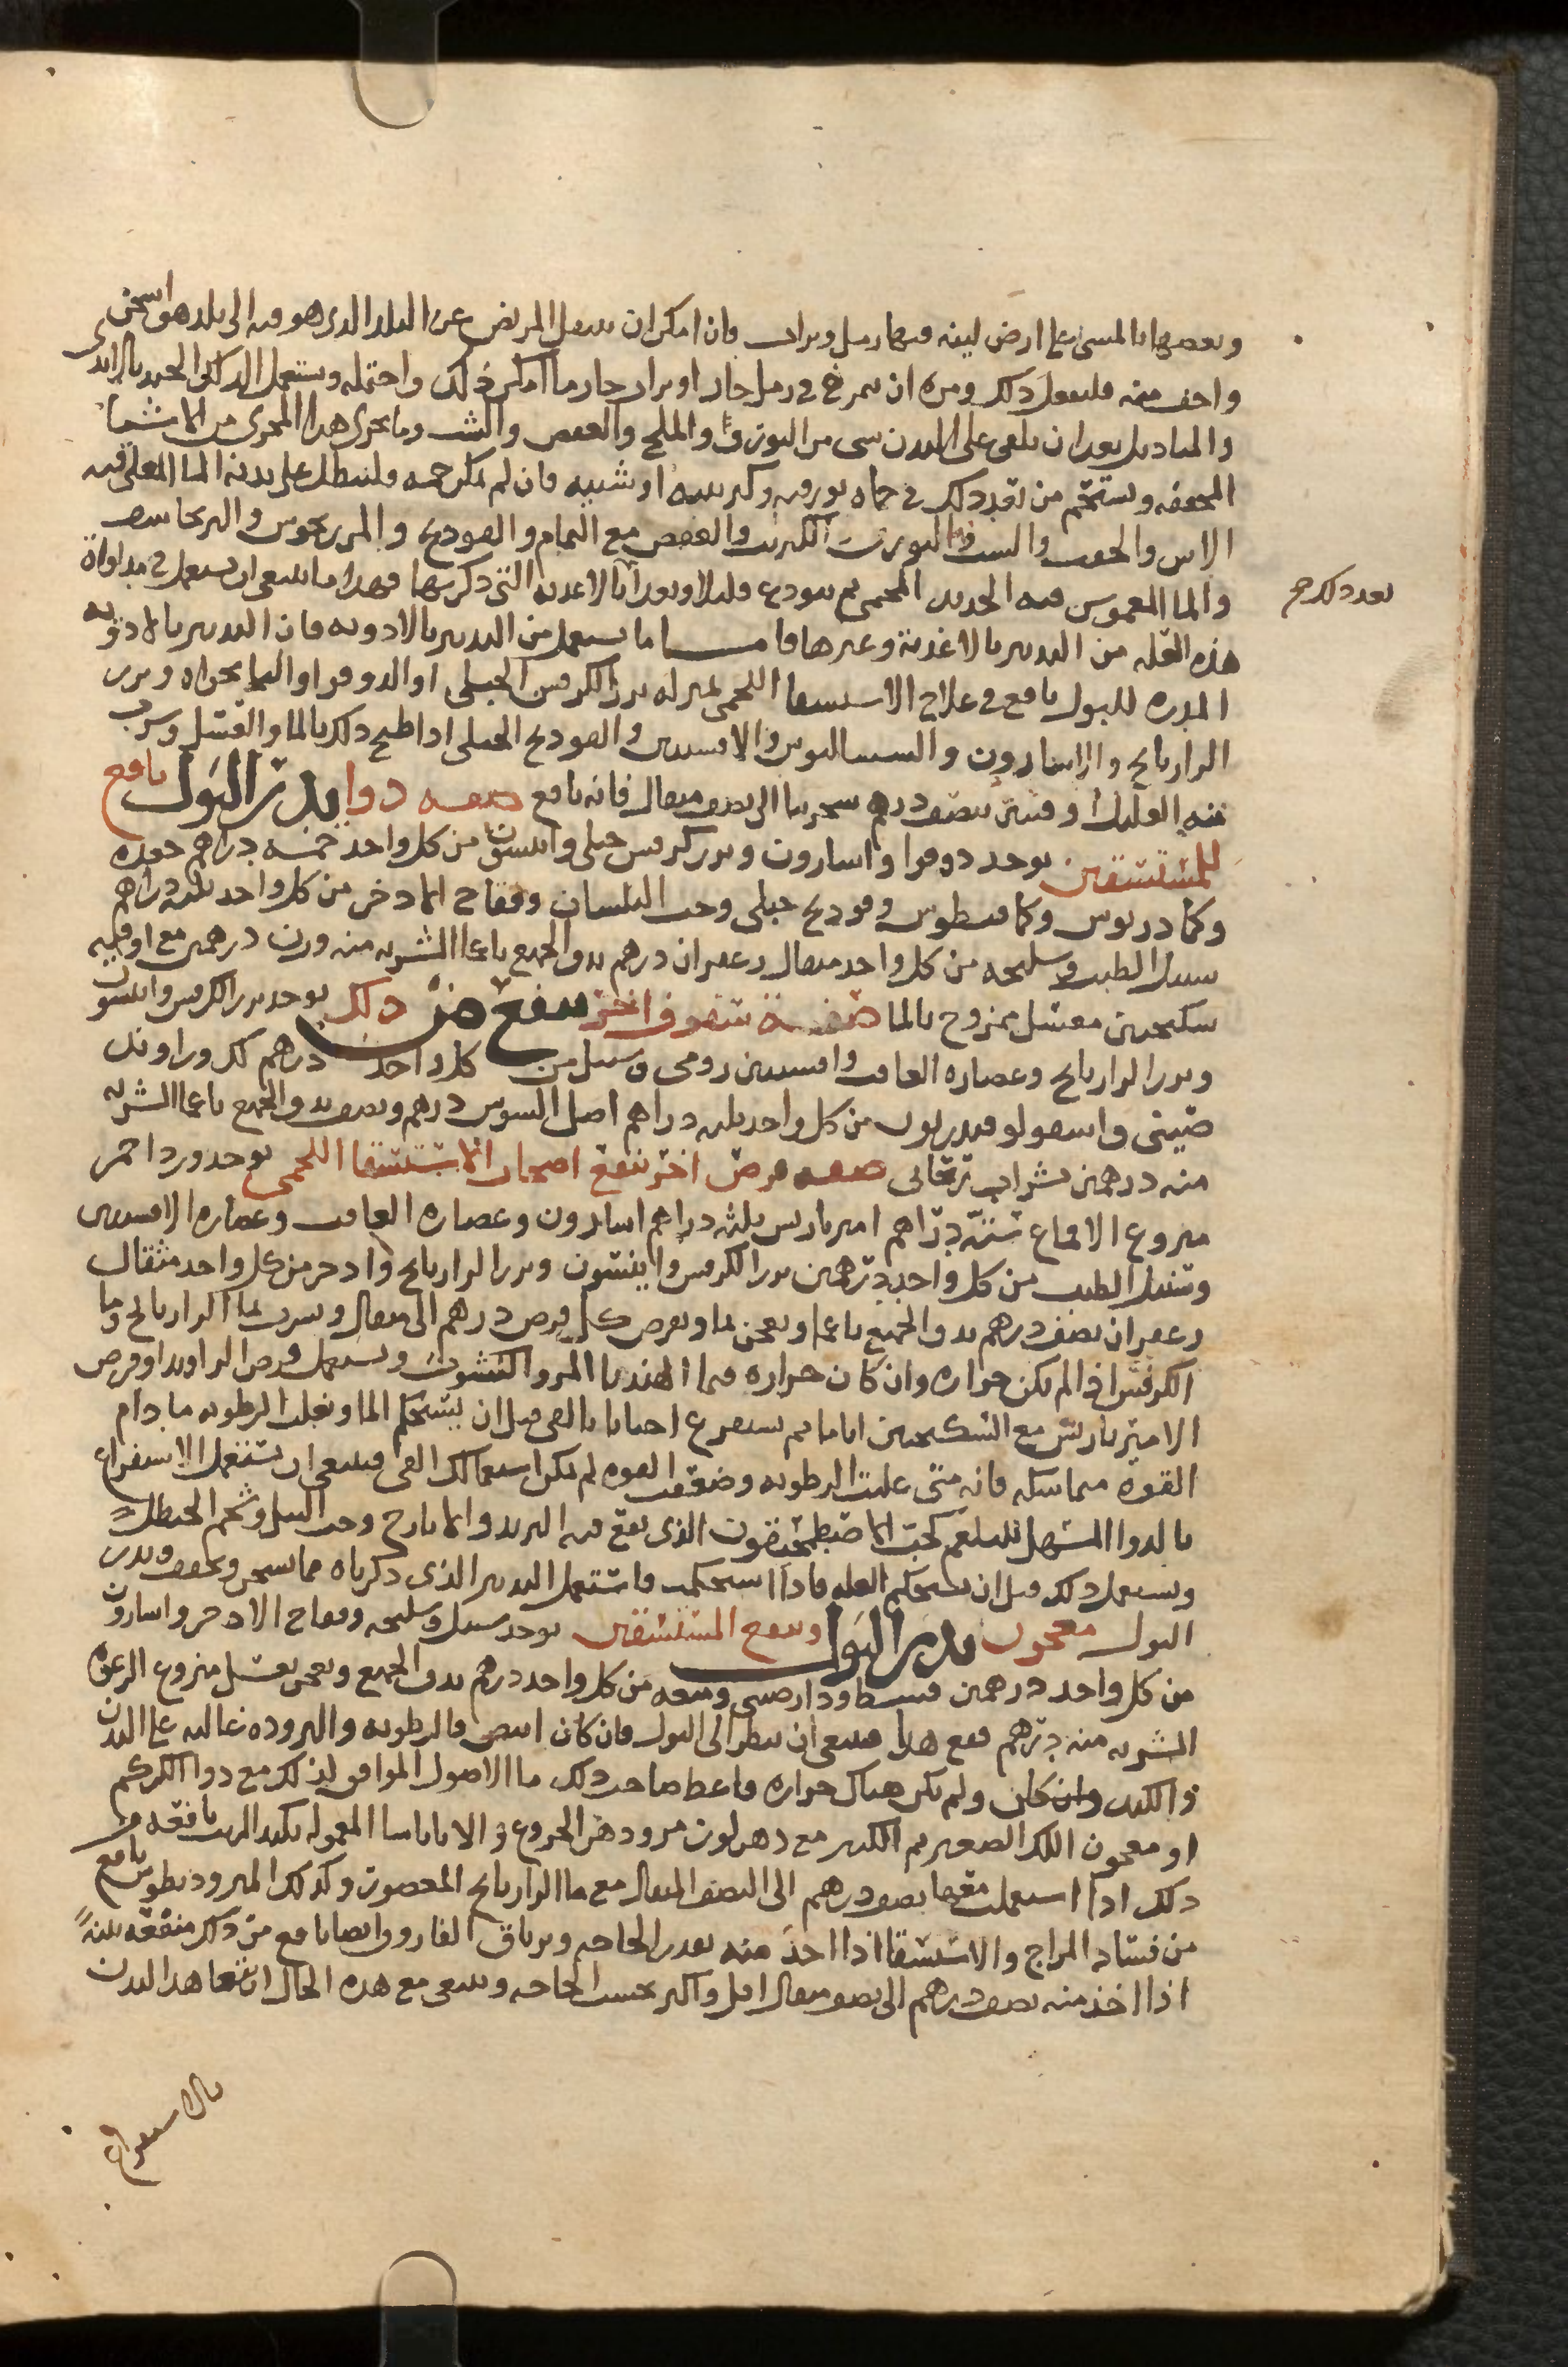 وبعضها بالمشي على ارض لينه فيها رمل وتراب فان امكن ان ينتقل المريض عن البلد الذي هو فيه الى بلد هو اسخن
واجف منه فليفعل ذلك ومره ان يتمرغ في رمل حار او تراب حار ما امكن ذلك واحتمله ويستعمل الدلك الجيد بالايدي
والمناديل بعد ان يلقى على البدن شي من البورق والملح والعفص والشب وما يجري هذا المجرى من الاشيا
المجففه ويستحم من بعد ذلك في حماه بورقيه وكبريتيه او شبيه فان لم يكن حمه فليبطل على بدنه الما المغلي فيه
الاس والشب والبورق الكبريت والعفص مع النمام والفودنج والمرزنجوش والبرنجاسف
والما المغموس فيه الحديد المحمى ثم يتودع قليلا ويغذا بالاغذيه التي ذكرتها فهذا ما ينبغي ان يستعمل في مداواة
بعد ذلك صح
هذه العله من التدبير بالاغذية وغيرها فاما ما يستعمل من التدبير بالادويه فان التدبير بالادويه
المدره للبول نافع في علاج الاستسقا اللحمي بمنزله بزر الكرفس الجبلي او الدوقوا وبزر
الرازيانج والاسارون والسيساليوس والافسنتين والفودنج الجبلي اذا طبخ ذلك بالما والعسل وشرب
منه نصف درهم الى نصف مثقال فانه نافع صفه دوا يدر البول نافع
للمستسقين يوخذ دوقوا واسارون وبزر كرفس جبلي وانيسون من كل واحد خمسه دراهم جعده
وكمادريوس وكمافيطوس وفودنج جبلي وحب البلسان وفقاح الاذخر من كل واحد ثلثه دراهم
سنبل الطيب وسليخه من كل واحد مثقال زعفران درهم يدق الجميع ناعما الشربه منه وزن درهمين مع اوقيه
سكنجبين معسل ممزوج بالما صفة سفوف اخر ينفع من ذلك يوخذ بزر الكرفس وانيسون
وبزر الرازيانج وعصاره الغافت وافسنتين رومي وسنبل من كل واحد درهم لك وراوند
صيني واسقولوقندريون من كل واحد ثلثه دراهم اصل السوس درهم ونصف يدق الجميع ناعما الشربه
منه درهمين بشراب ريحاني صفه قرص اخر ينفع اصحاب الاستسقا اللحمي يوخذ ورد احمر
منزوع الاقماع ستة دراهم اميرباريس ثلثه دراهم اسارون وعصاره الغافت وعصاره الافسنتين
وسنبل الطيب من كل واحد درهمين بزر الكرفس وانيسون وبزر الرازيانج واذخر من كل واحد مثقال
زعفران نصف درهم يدق الجميع ناعما ويعجن بما ويقرص كل قرص درهم الى مثقال ويشرب بما الرازيانج وما
الكرفس اذا لم يكن حراره وان كان حراره فبما الهندبا المر والكشوث ويستعمل قرص الراوند او قرص
الاميرباريس مع السكنجبين اياما ثم يستفرغ احيانا بالقي قبل ان يستحكم الما وتغلب الرطوبه ما دام
القوه متماسكه فانه متى غلبت الرطوبه وضعفت القوه لم يمكن استعمال القي فينبغي ان يستعمل الاستفراغ
بالدوا المسهل للبلغم كحب الاصطمخيقون الذي يقع فيه التربد والايارج وحب النيل وشحم الحنظل
ويستعمل ذلك قبل ان تستحكم العله فاذا استحكمت فاستعمل التدبير الذي ذكرناه مما يسخن ويجفف ويدر
البول معجون يدر البول وينفع المستسقين يوخذ سنبل وسليخه وفقاح الاذخر واسارون
من كل واحد درهمين قسط ودارصيني من كل واحد درهم يدق الجميع ويعجن بعسل منزوع الرغوه
الشربه منه درهم فمع هذا فينبغي ان ينظر الى البول فان كان ابيض فالرطوبه والبروده غالبه على البدن
والكبد وان كان ولم يكن هناك حراره فاعط صاحب ذلك ما الاصول الموافق لذلك مع دوا الكركم
او معجون اللك الصغير ثم الكبير مع دهن لوز مر ودهن الخروع والاثاناسيا المعموله بكبد الذيب نافعه من
ذلك اذا استعملت معها نصف درهم الى النصف المثقال مع ما الرازيانج المعصور وكذلك المثروديطوس نافع
من فساد المزاج والاستسقا اذا اخذ منه بقدر الحاجه وترياق الفاروق ايضا نافع من ذلك منفعه بينة
اذا اخذ منه نصف درهم الى نصف مثقال اقل واكثر بحسب الحاجه وينبغي مع هذه الحال ان تتعاهد البدن
بالاستفراغ